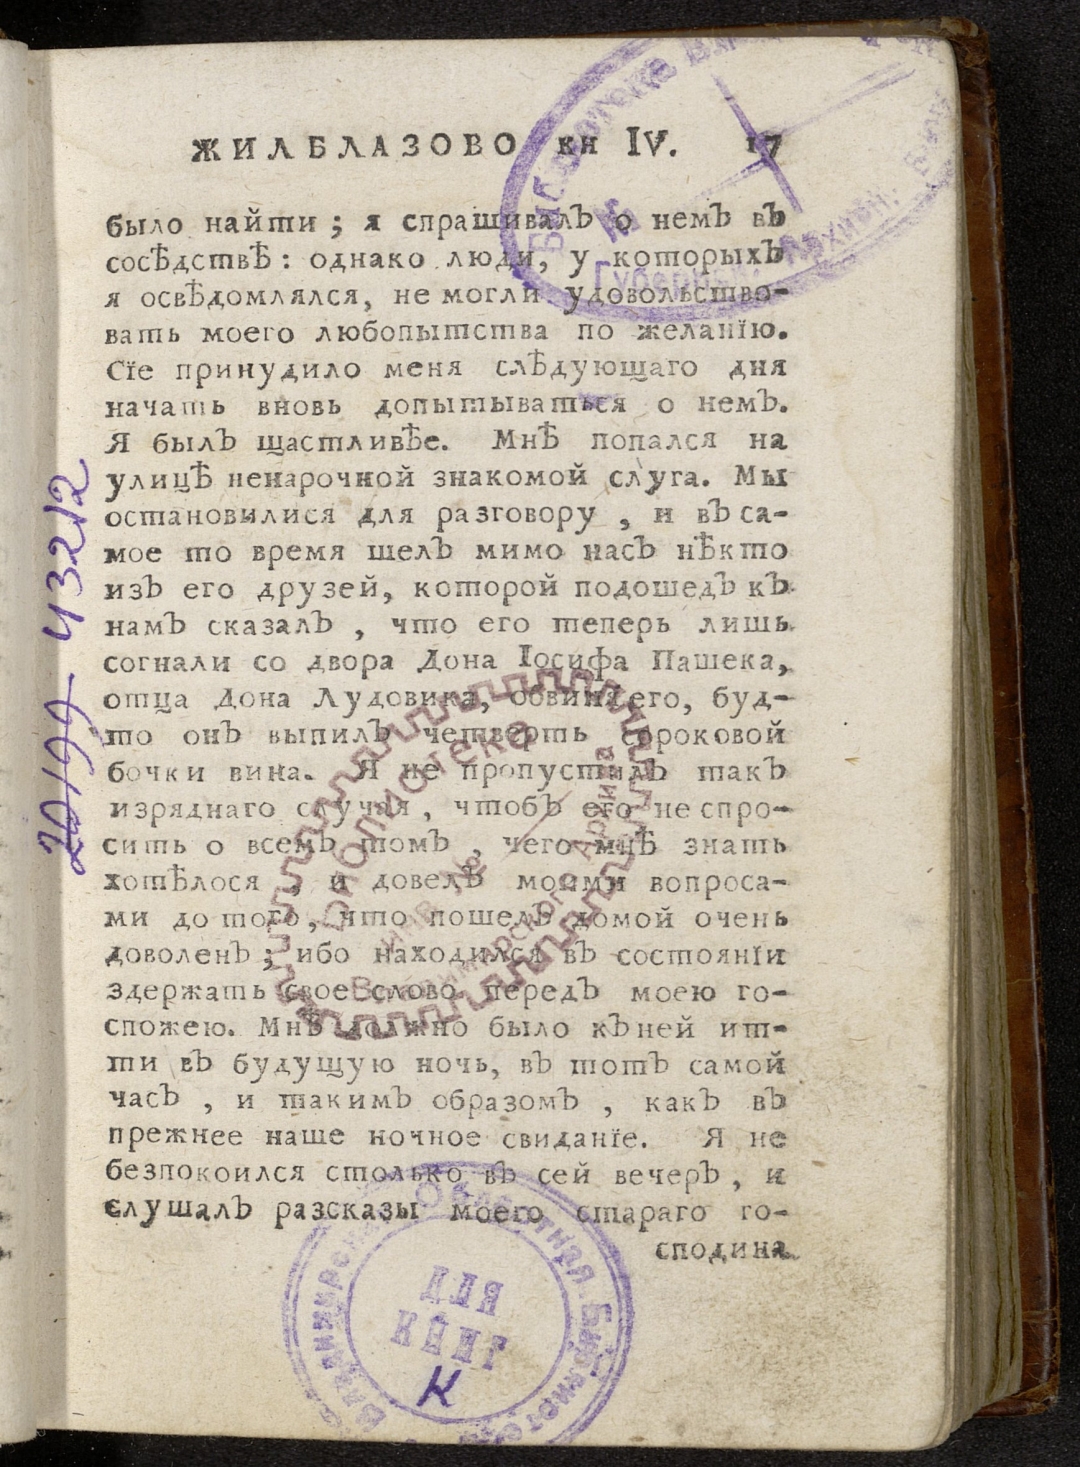 ЖИЛБЛАЗОВО кн IV. 17
было найти ; я спрашивалЪ о немЪ вЪ
сосѢдствѢ : однако люди, у которыхЪ
я освѢдомлялся, не могли удовольство-
вать моего любопытства по желанїю.
Сїе принудило меня слѢдующаго дня
начать вновь допытываться о немЪ.
Я былЪ щастливѢе. МнѢ попался на
улицѢ ненарочной знакомой слуга. Мы
остановилися для разговору , и вЪ са-
мое то время шелЪ мимо насЪ нѢкто
изЪ его друзей, которой подошедЪ кЪ
намЪ сказалЪ , что его теперь лишь
согнали со двора Дона Іосифа Пашека,
отца Дона Лудовика, обвиняя его, буд-
то онЪ выпилЪ четверть сороковой
бочки вина. Я не пропустилЪ такЪ
изряднаго случая , чтобЪ его не спро-
сить о всемЪ томЪ , чего мнѢ знать
хотѢлося , и довелЪ моими вопроса-
ми до того, что пошелЪ домой очень
доволенЪ ; ибо находился вЪ состоянїи
здержать свое слово передЪ моею го-
спожею. МнѢ должно было кЪ ней ит-
ти вЪ будущую ночь, вЪ тотЪ самой
часЪ , и такимЪ образомЪ , какЪ вЪ
прежнее наше ночное свиданїе. Я не
безпокоился столько вЪ сей вечерЪ , и
слушалЪ разсказы моего стараго го-
сподина
20199 43212
Библиотека
Губернск. Архивн.
Библиотека
Владимирского Архива
Владимирская Областная Библиотека
ДЛЯ
КНИГ
К